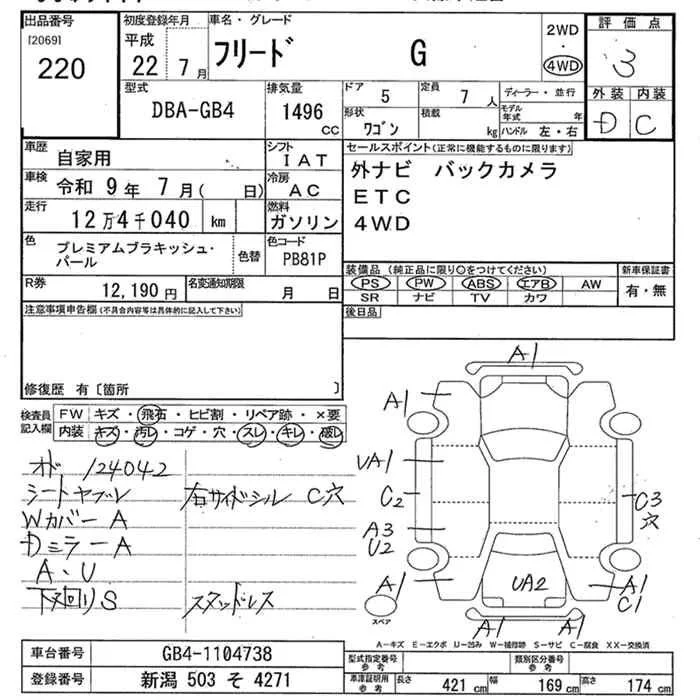 出品番号
[2069]
220
初度登録年月
平成
22 7月
車名・グレード
フリード G
2WD
・
4WD
評価点
3
外装 内装
D C
型式
DBA-GB4
排気量
1496
CC
ドア 5
定員 7人
形状 ワゴン
積載 kg
ディーラー・並行
モデル年式 年
ハンドル 左・右
車歴
自家用
シフト
IAT
車検 令和 9年 7月( 日)
冷房
AC
走行
12万4千040 km
燃料
ガソリン
色 プレミアムブラキッシュ・パール
色替
色コード
PB81P
R券
12,190円
名変通知期限
月 日
セールスポイント(正常に機能するものに限ります)
外ナビ バックカメラ
ETC
4WD
装備品 (純正品に限り○をつけてください)
PS PW ABS エアB AW
SR ナビ TV カワ
新車保証書
有・無
後日品
注意事項申告欄(不具合内容等は具体的に記入して下さい)
修復歴 有〔箇所 〕
検査員記入欄
FW キズ・飛石・ヒビ割・リペア跡・×要
内装 キズ・汚レ・コゲ・穴・スレ・キレ・破レ
オド 124042
シートヤブレ
Wカバー A
Dミラー A
A・U
下廻り S
右サイドシル C穴
スタッドレス
A1
A1
UA1
C2
A3
U2
A1
C3
穴
UA2
A1
C1
A1 A1
スペア
A－キズ E－エクボ U－凹み W－補修跡 S－サビ C－腐食 XX－交換済
車台番号
GB4-1104738
登録番号
新潟 503 そ 4271
型式指定番号
参考
類別区分番号
参考
車庫証明用
参考
長さ 421cm
幅 169cm
高さ 174cm